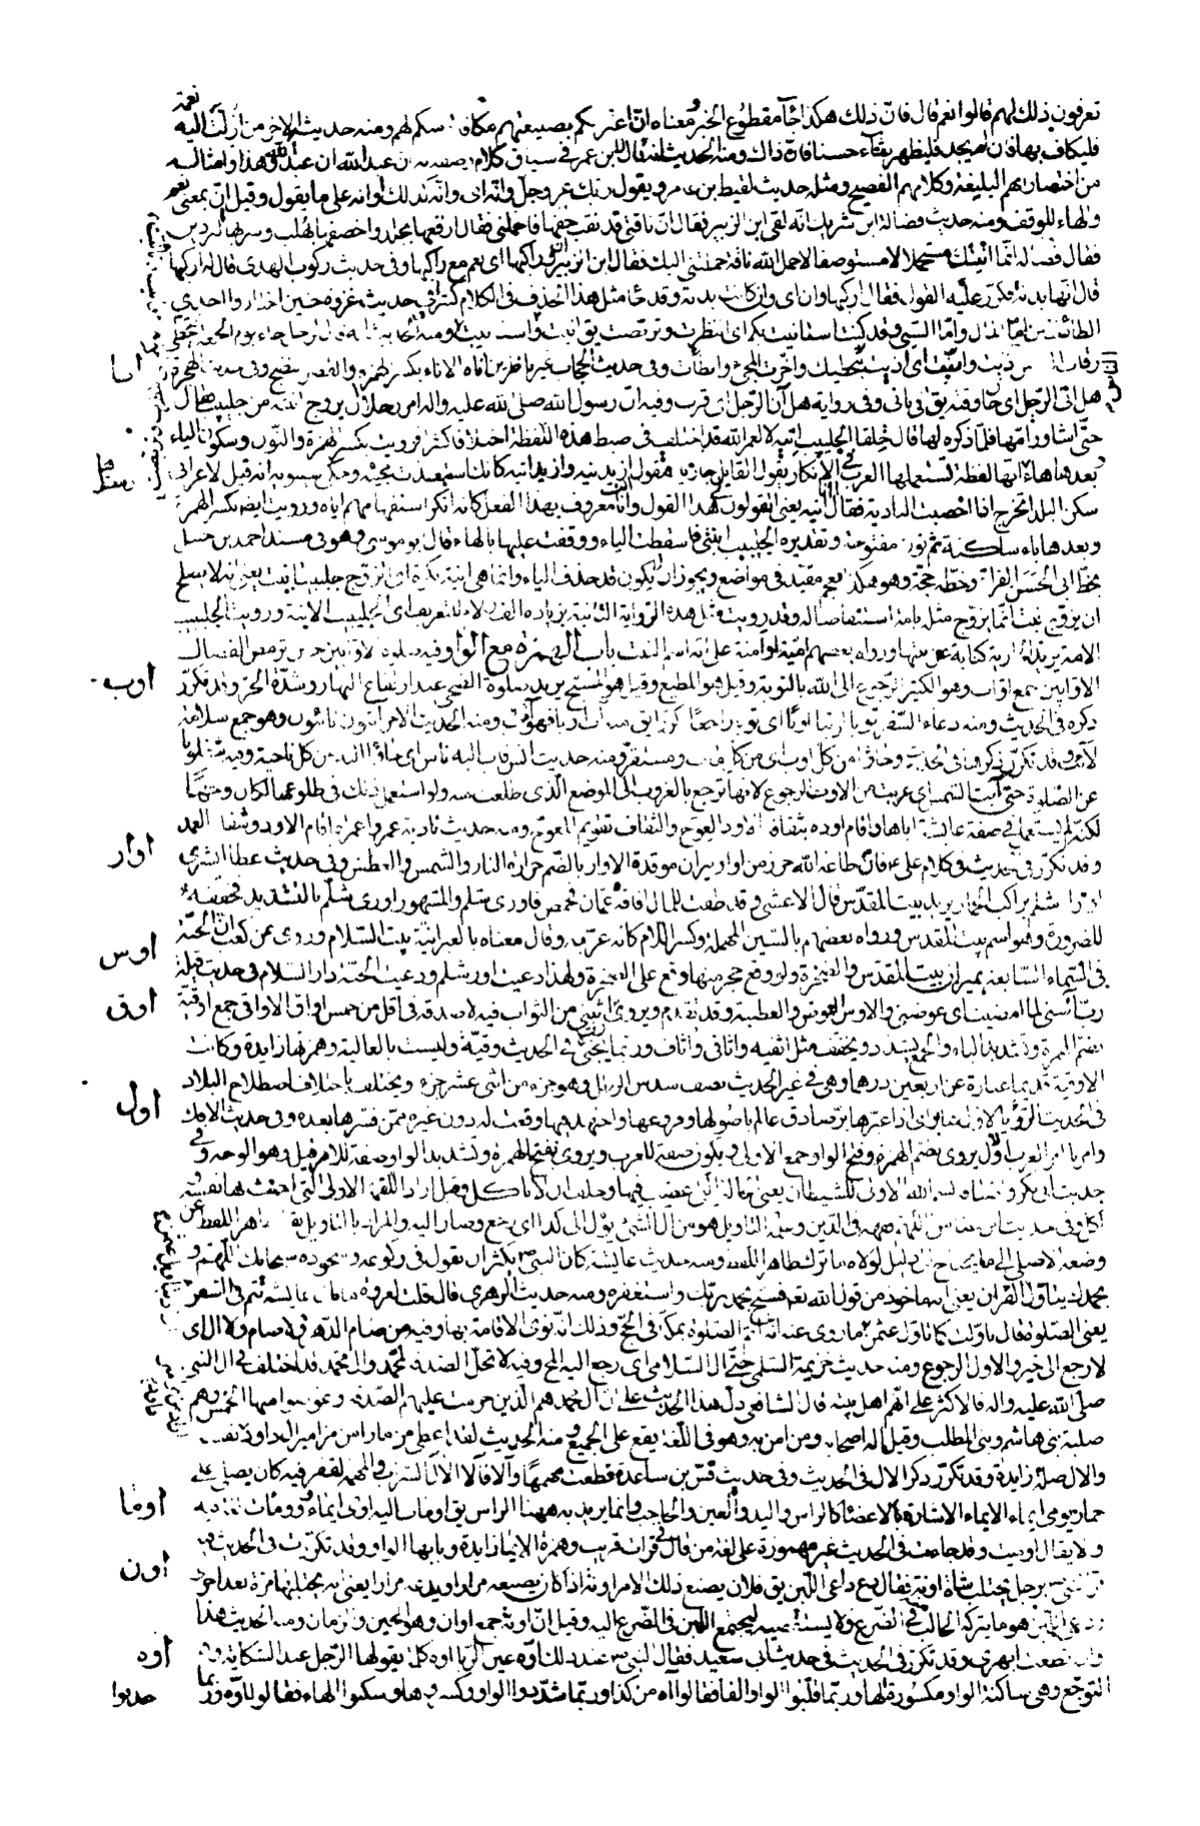 تعرفون ذلك لهم قالوا نعم قال فان ذلك هكذا جآ مقطوع الخبر ومعناه ان اعترافكم بصنيعهم مكافاة منكم لهم ومنه حديثه الاخر من ازلت اليه نعمة
فليكاف بها فان لم يجد فليظهر ثناء حسنا فان ذاك ومنه الحديث انه قال لابن عمر في سياق كلام وصفه به ان عبد الله ان عبد الله وهذا وامثاله
من اختصاراتهم البليغة وكلامهم الفصيح ومثله حديث لقيط بن عامر ويقول ربك عز وجل وانه اى وانه كذلك او انه على ما يقول وقيل ان بمعنى نعم
والهاء للوقف ومنه حديث فضالة ابن شريك انه لقى ابن الزبير فقال ان ناقتى قد نقب خفها فاحملنى فقال ارقعها بجلد واخصفها بهلب وسر بها البردين
فقال فضالة انما اتيتك مستحملا لا مستوصفا لا حمل الله ناقة حملتنى اليك فقال ابن الزبير ان وراكبها اى نعم مع راكبها وفى حديث ركوب الهدى قال له اركبها
قال انها بدنة فكرر عليه القول فقال اركبها وان اى وان كانت بدنة وقد جآ مثل هذا الحذف في الكلام كثيرا في حديث غزوة حنين اختاروا احدى
الطائفتين اما المال واما السبى وقد كنت استانيت بكم اى انتظرت وتربصت يق انيت واستانيت ومنه الحديث انه قال لرجل جاء يوم الجمعة يتخطى
رقاب الناس اذيت وآنيت اى اذيت بتخطيك واخرت المجيء وابطأت وفى حديث الحجاب غير ناظرين اناه الاناء بكسر الهمزة والقصر النضج وفى حديث الهجرة
هل انى الرحيل اى حان وقته يق انى يانى وفى رواية هل آن الرحيل اى قرب وفيه ان رسول الله صلى الله عليه واله امر رجلا ان يزوج ابنته من جليبيب فقال
حتى اشاور امها فلما ذكره لها قال حلقا الجليبيب انيه لا لعمر الله قد اختلف في ضبط هذه اللفظة اختلافا كثيرا فرويت بكسر الهمزة والنون وسكون الياء
وبعدها هاء انها لفظة تستعملها العرب في الانكار يقول القايل جاء زيد فتقول ازيدنيه وازيد انيه كانك استبعدت مجيئه وحكى سيبويه انه قيل لاعرابى
سكن البلد اتخرج اذا اخصبت البادية فقال انا انيه يعنى اتقولون لى هذا القول وانا معروف بهذا الفعل كانه انكر استفهامهم اياه ورويت ايضا بكسر الهمزة
وبعدها ياء ساكنة ثم نون مفتوحة وتقديره الجليبيب ابنتى فاسقطت الياء ووقفت عليها بالهاء قال ابو موسى وهو في مسند احمد بن حنبل
بخط ابى الحسن الفرات وخطه حجة وهو هكذا معجم مقيد في مواضع ويجوز ان لا يكون قد حذف الياء وانما هى ابنة نكرة اى اتزوج جليبيبا ببنت يعنى انه لا يصلح
ان يزوج ببنت انما يزوج مثله بامة استنقاصا له وقد رويت مثل هذه الرواية الثانية بزيادة الف ولام للتعريف اى الجليبيب الابنة ورويت الجليبيب
الامة تريد الجارية كناية عن بنتها ورواه بعضهم امية او امنة على انه اسم البنت باب الهمزة مع الواو فيه صلوة الاوابين حين ترمض الفصال
الاوابين جمع اواب وهو الكثير الرجوع الى الله بالتوبة وقيل هو المطيع وقيل هو المسبح يريد صلوة الضحى عند ارتفاع النهار وشدة الحر وقد تكرر
ذكره في الحديث ومنه دعاء السفر توبا لربنا اوبا اى توبا راجعا مكررا يق منه آب اوبا فهو آئب ومنه الحديث الاخر آئبون تائبون وهو جمع سلامة
لآئب وقد تكرر ذكرها في الحديث وجاؤا من كل اوب اى من كل ماب ومستقر ومنه حديث انس فاب اليه ناس اى جاؤا اليه من كل ناحية وفيه شغلونا
عن الصلوة حتى آبت الشمس اى غربت من الاوب الرجوع لانها ترجع بالغروب الى الموضع الذى طلعت منه ولو استعمل ذلك في طلوعها لكان وجها
لكنه لم يستعمل في صفة عائشة اباها واقام اوده بثقافه الاود العوج والثقاف تقويم المعوج ومنه حديث نادبة عمر واعمراه اقام الاود وشفا العمد
وقد تكرر في الحديث في كلام على ع فان طاعة الله حرز من اوار نيران موقدة الاوار بالضم حرارة النار والشمس والعطش وفى حديث عطا ابشرى
اورى شلم براكب الحمار يريد بيت المقدس قال الاعشى وقد طفت للمال افاقه عمان فحمص فاورى شلم والمشهور اورى شلم بالتشديد فخففه
للضرورة وهو اسم بيت المقدس ورواه بعضهم بالسين المهملة وكسر اللام كانه عربه وقال معناه بالعبرانية بيت السلام وروى عن كعب ان الجنة
في السماء السابعة بميزان بيت المقدس والصخرة ولو وقع حجر منها وقع على الصخرة ولهذا دعيت اورشلم ودعيت الجنة دار السلام في حديث قيلة
رب اسنى لما امضيت اى عوضنى والاوس العوض والعطية وقد تقدم ويروى اثبنى من الثواب فيه لا صدقة في اقل من خمس اواق الاواقى جمع اوقية
بضم الهمزة وتشديد الياء والجمع يشدد ويخفف مثل اثفية واثافى واثاف وربما يجئ في الحديث وقية وليست بالعالية وهمزتها زايدة وكانت
الاوقية قديما عبارة عن اربعين درهما وهى في غير الحديث نصف سدس الرطل وهو جزء من اثنى عشر جزء ويختلف باختلاف اصطلاح البلاد
في الحديث الرؤيا لاول عابر اى اذا عبرها بر صادق عالم باصولها وفروعها واجتهد فيها وقعت له دون غيره ممن فسرها بعده وفى حديث الافك
وامرنا امر العرب الاول يروى بضم الهمزة وفتح الواو جمع الاولى ويكون صفة للعرب ويروى بفتح الهمزة وتشديد الواو صفة للامر قيل وهو الوجه وفى
حديث ابى بكر واضيافه بسم الله الاولى للشيطان يعنى الحالة التى غضب فيها وحلف ان لا ياكل وقيل اراد اللقمة الاولى التى احنث بها نفسه
واكل وفى حديث ابن عباس اللهم فقهه في الدين وعلمه التاويل هو من آل الشئ يؤل الى كذا اى رجع وصار اليه والمراد بالتاويل نقل ظاهر اللفظ عن
وضعه الاصلى الى ما يحتاج الى دليل لولاه ما ترك ظاهر اللفظ ومنه حديث عائشة كان النبى ص يكثر ان يقول في ركوعه وسجوده سبحانك اللهم و
بحمدك يتاول القران يعنى انه ماخوذ من قول الله تعم فسبح بحمد ربك واستغفره ومنه حديث الزهرى قال قلت لعروة ما بال عايشة تتم في السفر
يعنى الصلوة قال تاولت كما تاول عثمن ما روى عنه انه اتم الصلوة بمكة في الحج وذلك انه نوى الاقامة بها وفيه من صام الدهر فلا صام ولا آل اى
لا رجع الى خير والاول الرجوع ومنه حديث خزيمة السلمى حتى آل السلامى اى رجع اليه المخ وفيه لا تحل الصدقة لمحمد وال محمد قد اختلف في ال النبى
صلى الله عليه واله فالاكثر على انهم اهل بيته قال الشافعى دل هذا الحديث على ان ال محمد هم الذين حرمت عليهم الصدقة وعوضوا منها الخمس وهم
صليبة بنى هاشم وبنى المطلب وقيل اله اصحابه ومن امن به وهو في اللغة يقع على الجميع ومنه الحديث لقد اعطى مزمارا من مزامير ال داود
والال صلة زايدة وقد تكرر ذكر الال في الحديث وفى حديث قس بن ساعدة قطعت مهمها وآلا فآلا الآل السراب والمهمه القفر فيه كان يصلى على
حمار يومى ايماء الايماء الاشارة بالاعضا كالراس واليد والعين والحاجب وانما يريد به ههنا الراس يق اومات اليه اومى ايماء وومات لغة فيه
ولا يقال اوميت وقد جاءت في الحديث غير مهموزة على لغة من قال في قرات قريت وهمزة الايماء زايدة وبابها الواو وقد تكررت في الحديث فيه
مر النبى ص برجل يحتلب شاة آونة فقال دع داعى اللبن يق فلان يصنع ذلك الامر آونة اذا كان يصنعه مرارا ويدعه مرارا يعنى انه يحتلبها مرة بعد اخرى
وداعى اللبن هو ما يتركه الحالب في الضرع ولا يستقصيه ليجتمع اللبن في الضرع اليه وقيل ان آونة جمع اوان وهو الحين والزمان ومنه الحديث هذا
اوان قطعت ابهرى وقد تكرر في الحديث في حديث ابى سعيد فقال النبى ص عند ذلك اوه عين الربا اوه كلمة يقولها الرجل عند الشكاية و
التوجع وهى ساكنة الواو مكسورة الهاء وربما قلبوا الواو الفا فقالوا آه من كذا وربما شددوا الواو وكسروها وسكنوا الهاء فقالوا اوه وربما
حذفوا
اوب
اوار
اوس
اوق
اول
اوما
اون
اوه